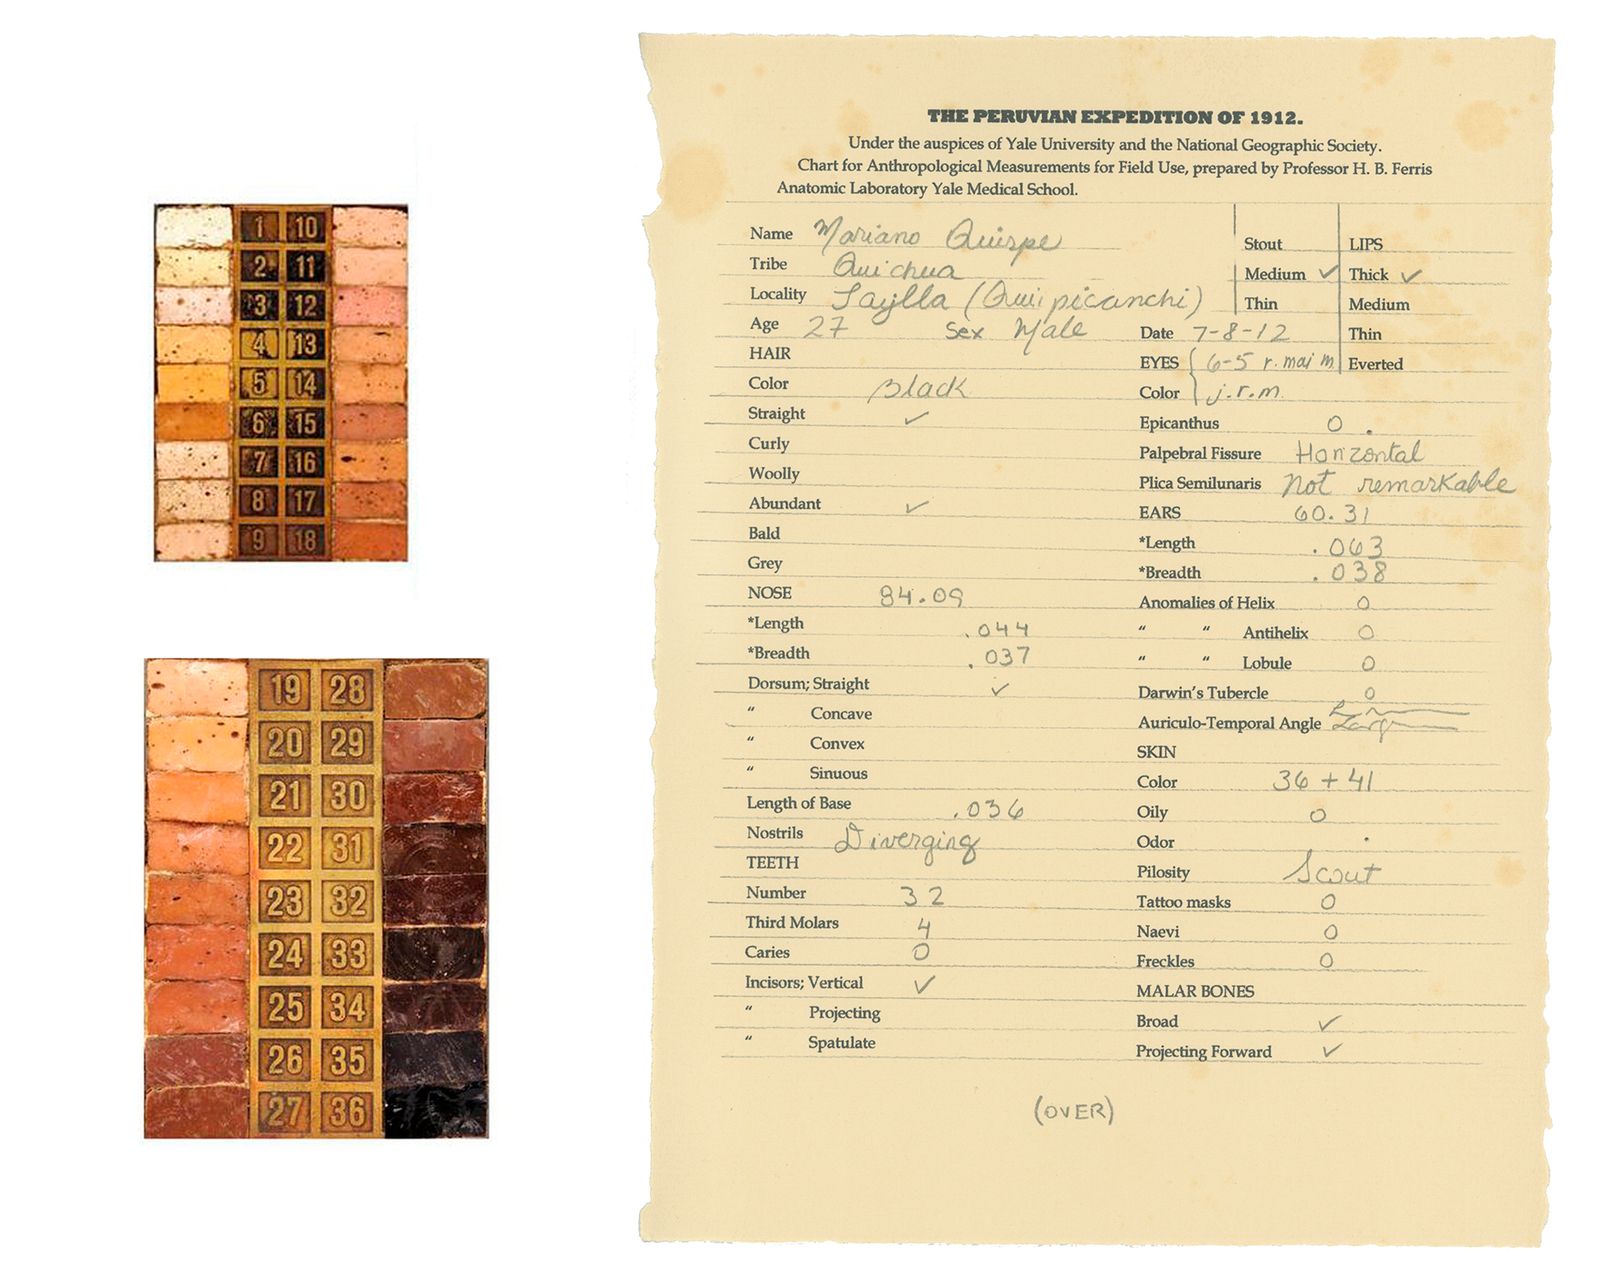 1 10
2 11
3 12
4 13
5 14
6 15
7 16
8 17
9 18
19 28
20 29
21 30
22 31
23 32
24 33
25 34
26 35
27 36
THE PERUVIAN EXPEDITION OF 1912.
Under the auspices of Yale University and the National Geographic Society.
Chart for Anthropological Measurements for Field Use, prepared by Professor H. B. Ferris
Anatomic Laboratory Yale Medical School.
Name Mariano Quispe
Tribe Quichua
Locality Saylla (Quipicanchi)
Age 27 Sex Male
HAIR
Color Black
Straight ✓
Curly
Woolly
Abundant ✓
Bald
Grey
NOSE 84.09
*Length .044
*Breadth .037
Dorsum; Straight ✓
" Concave
" Convex
" Sinuous
Length of Base .036
Nostrils Diverging
TEETH
Number 32
Third Molars 4
Caries 0
Incisors; Vertical ✓
" Projecting
" Spatulate
Stout
Medium ✓
Thin
LIPS
Thick ✓
Medium
Thin
Everted
Date 7-8-12
EYES 6-5 r. mai m
Color j.r.m.
Epicanthus 0
Palpebral Fissure Horizontal
Plica Semilunaris not remarkable
EARS 60.31
*Length .063
*Breadth .038
Anomalies of Helix 0
" " Antihelix 0
" " Lobule 0
Darwin's Tubercle 0
Auriculo-Temporal Angle
SKIN
Color 36 + 41
Oily 0
Odor
Pilosity
Tattoo masks 0
Naevi 0
Freckles 0
MALAR BONES
Broad ✓
Projecting Forward ✓
(OVER)